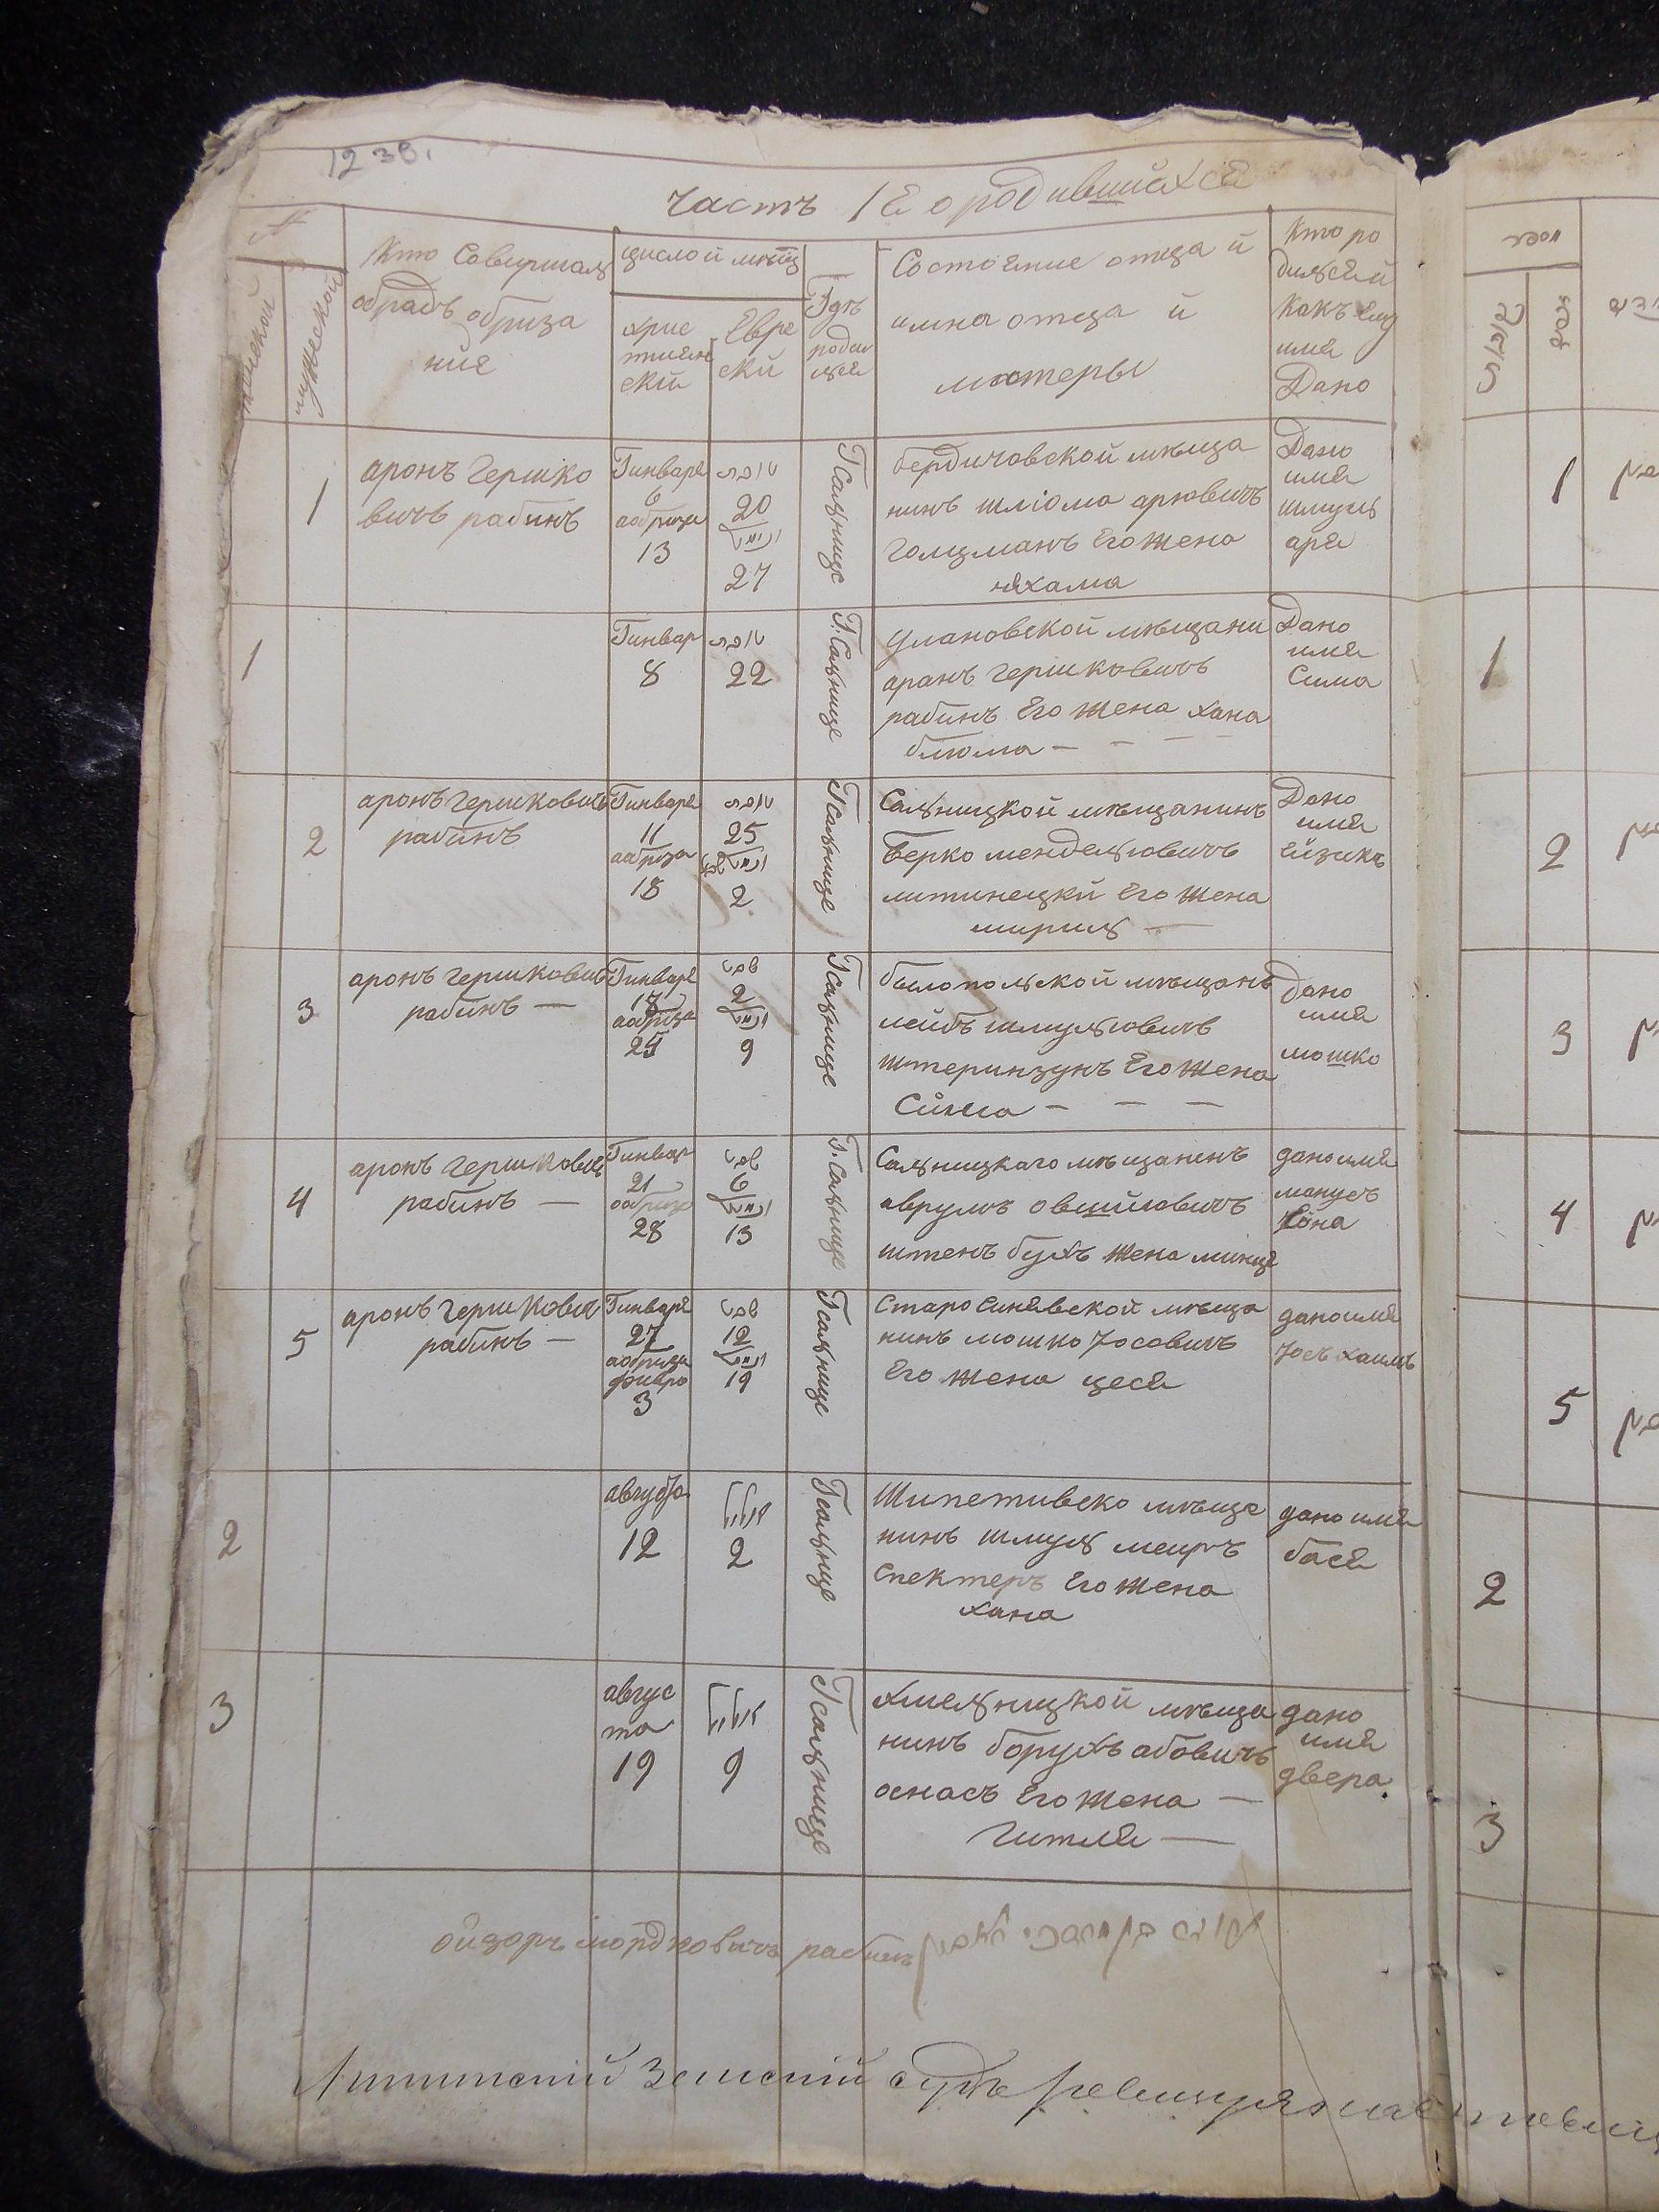 1238.
Часть 1 Е о родившихся
№
женской
мужеской
Кто Совиршал
обрадъ обриза
ния
число й мъсц
хрис
тиян
скій
Евре
скй
Гдъ
родил
цся
Состояние отца й
имна отца й
матеры
Кто ро
дился й
Какъ ему
имя
Дано
1
аронъ Гершко
вичъ рабинъ
Гинваря
6
аобриза
13
טבת
20
27
Г Сальнице
бердичовской мъща
нинъ шліома арювичъ
голцманъ Его жена
няхама
Дано
имя
шмуль
аря
1
Гинвар
8
טבת
22
Г. Сальнице
улановской мъщани
аранъ гершковичъ
рабинъ Его жена хана
блюма — — —
Дано
имя
Сима
2
аронъ гершковичъ
рабинъ
Гинваря
11
аобриза
18
טבת
25
שבט
2
Г Сальнице
Сальницкой мъщанинъ
Берко мендельовичъ
литинецкй Его жена
мириль —
Дано
имя
Ейзикъ
3
аронъ гершковичъ
рабинъ —
Гинваря
18
аобриза
25
שבט
2
9
Г Сальнице
былопольской мъщанъ
лейбъ шмульовичъ
штеринзунъ Его жена
Сйма — — —
дано
имя
мошко
4
аронъ гершковичъ
рабинъ —
Гинвар
21
аобриза
28
שבט
6
13
Г. Сальнице
Сальницкаго мъщаненъ
аврумъ овшийовичъ
штенъ бухъ жена минця
дано имя
манусъ
Йона
5
аронъ гершкович
рабинъ —
Гинваря
27
аобриза
февро
3
שבט
12
19
Г Сальнице
Старо Синявской мъща
нинъ мошко Йосовичъ
Его жена цеся
дано имя
Йосъ хаимъ
2
августа
12
אלול
2
Г Сальнице
Шипетивско мъща
нинъ шмуль меиръ
Спектеръ Его жена
хана
дано имя
бася
3
авгус
та
19
אלול
9
Г Сальнице
Хмельницкой мъща
нинъ борухъ абовичъ
оснасъ Его жена —
Гитля —
дано
имя
двера
ойзоръ мордковичъ рабинъ
Литинский Земский судъ
пол
1
1
2
3
4
5
2
3